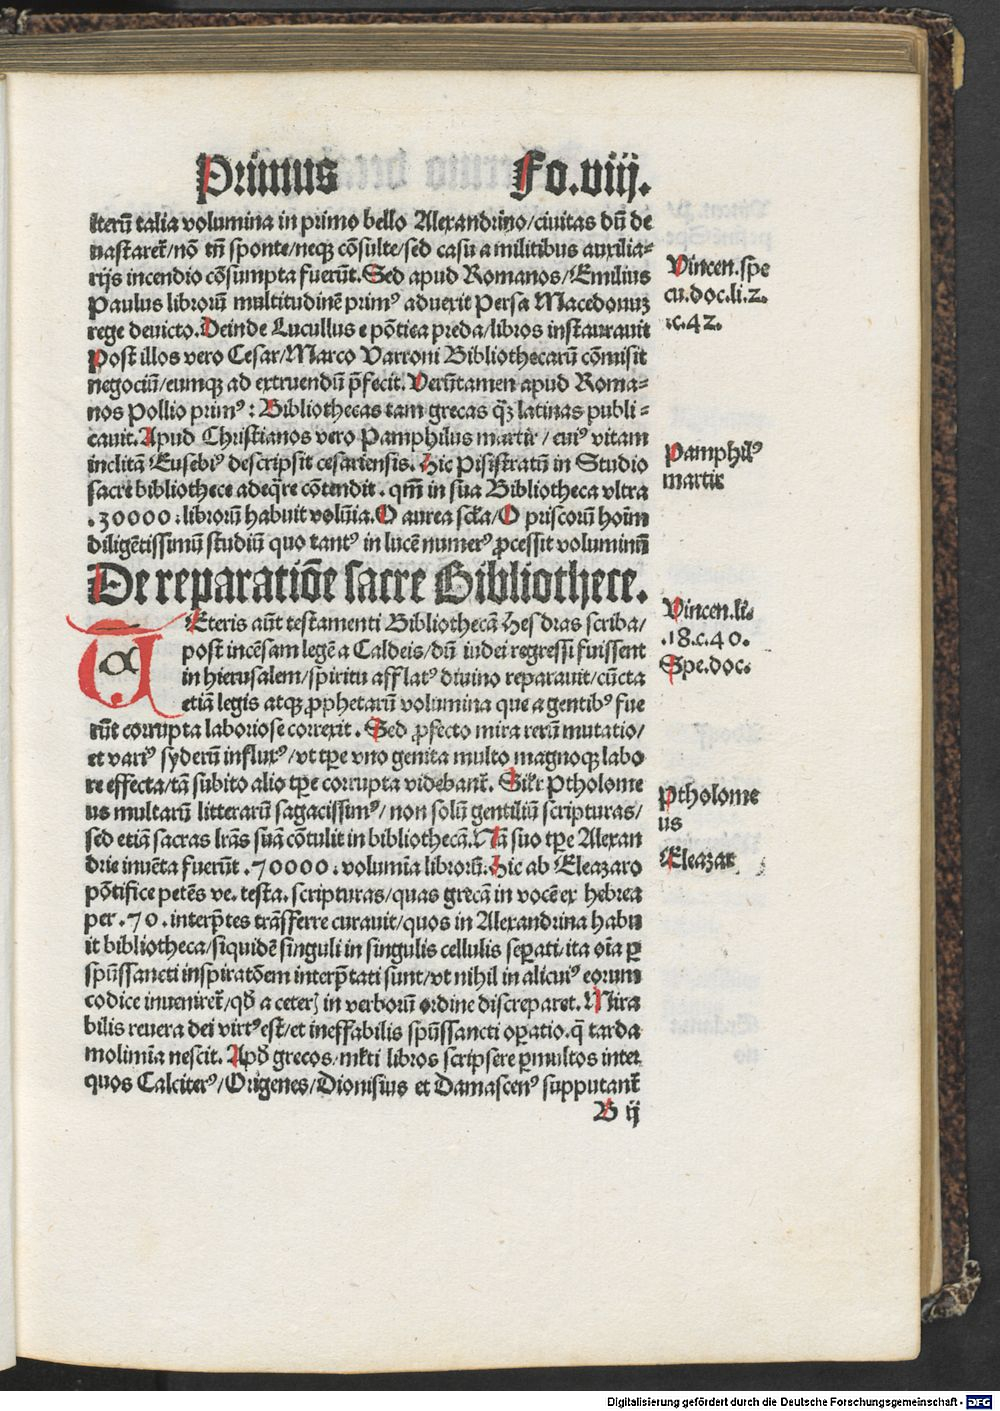 Primus Fo.viij.
iterū talia volumina in primo bello Alexandrino/ciuitas dū de
uastaret̄/nō tn̄ sponte/neqꝫ cōsulte/sed casu a militibus auxilia⸗
rijs incendio cōsumpta fuerūt. Sed apud Romanos/Emilius
Paulus librorū multitudinē primꝰ aduexit Persa Macedonuꝫ
rege deuicto. Deinde Lucullus e pōtica preda/libros instaurauit
Post illos vero Cesar/Marco Varroni Bibliothecarū cōmisit
negociū/eumqꝫ ad extruendū p̄fecit. Verūtamen apud Roma⸗
nos Pollio primꝰ : Bibliothecas tam grecas q̄ꝫ latinas publi⸗
cauit. Apud Christianos vero Pamphilus martir / cuiꝰ vitam
inclitā Eusebiꝰ descripsit cesariensis. Hic Pisistratū in Studio
sacre bibliothece adeq̄re cōtendit . qm̄ in sua Bibliotheca vltra
.30000: librorū habuit volūia. O aurea scl̄a/O priscorū hoīm
diligētissimū studiū quo tantꝰ in lucē numerꝰ ꝓcessit voluminū
De reparatiōe sacre Bibliothece.
VEteris aūt testamenti Bibliothecā Hesdras scriba/
post incēsam legē a Caldeis/dū iudei regressi fuissent
in hierusalem/spiritu afflatꝰ diuino reparauit/cūcta
etiā legis atqꝫ ꝓphetarū volumina que a gentibꝰ fue
rūt corrupta laboriose correxit. Sed ꝓfecto mira rerū mutatio/
et variꝰ syderū influxꝰ/vt tꝑe vno genita multo magnoqꝫ labo
re effecta/tā subito alio tꝑe corrupta videbant̄. Silr̄ Ptholome
us multarū litterarū sagacissimꝰ/non solū gentiliū scripturas/
sed etiā sacras lr̄as suā cōtulit in bibliothecā. Nā suo tꝑe Alexan
drie inuēta fuerūt .70000: volumīa librorū. Hic ab Eleazaro
pōtifice petēs ve. testa. scripturas/quas grecā in vocē ex hebrea
per .70. interp̄tes trāsferre curauit/quos in Alexandrina habu
it bibliotheca/siquidē singuli in singulis cellulis seꝑati/ita oīa ꝑ
spūssancti inspiratōem interp̄tati sunt/vt nihil in alicuiꝰ eorum
codice inueniret̄/qd̄ a ceterꝫ in verborū ordine discreparet. Mira
bilis reuera dei virtꝰ est/et ineffabilis spūssancti oꝑatio. q̄ tarda
molimīa nescit. Apd̄ grecos/ml̄ti libros scripsere ꝑmultos inter
quos Calciterꝰ/Origenes/Dionisius et Damascenꝰ supputant̄
B ij
Vincen.spe
cu.doc.li.2.
.c.42.
Pamphilꝰ
martir
Vincen.li.
.18.c.40.
Spe.doc.
Ptholome
us
Eleazar
Digitalisierung gefördert durch die Deutsche Forschungsgemeinschaft - DFG